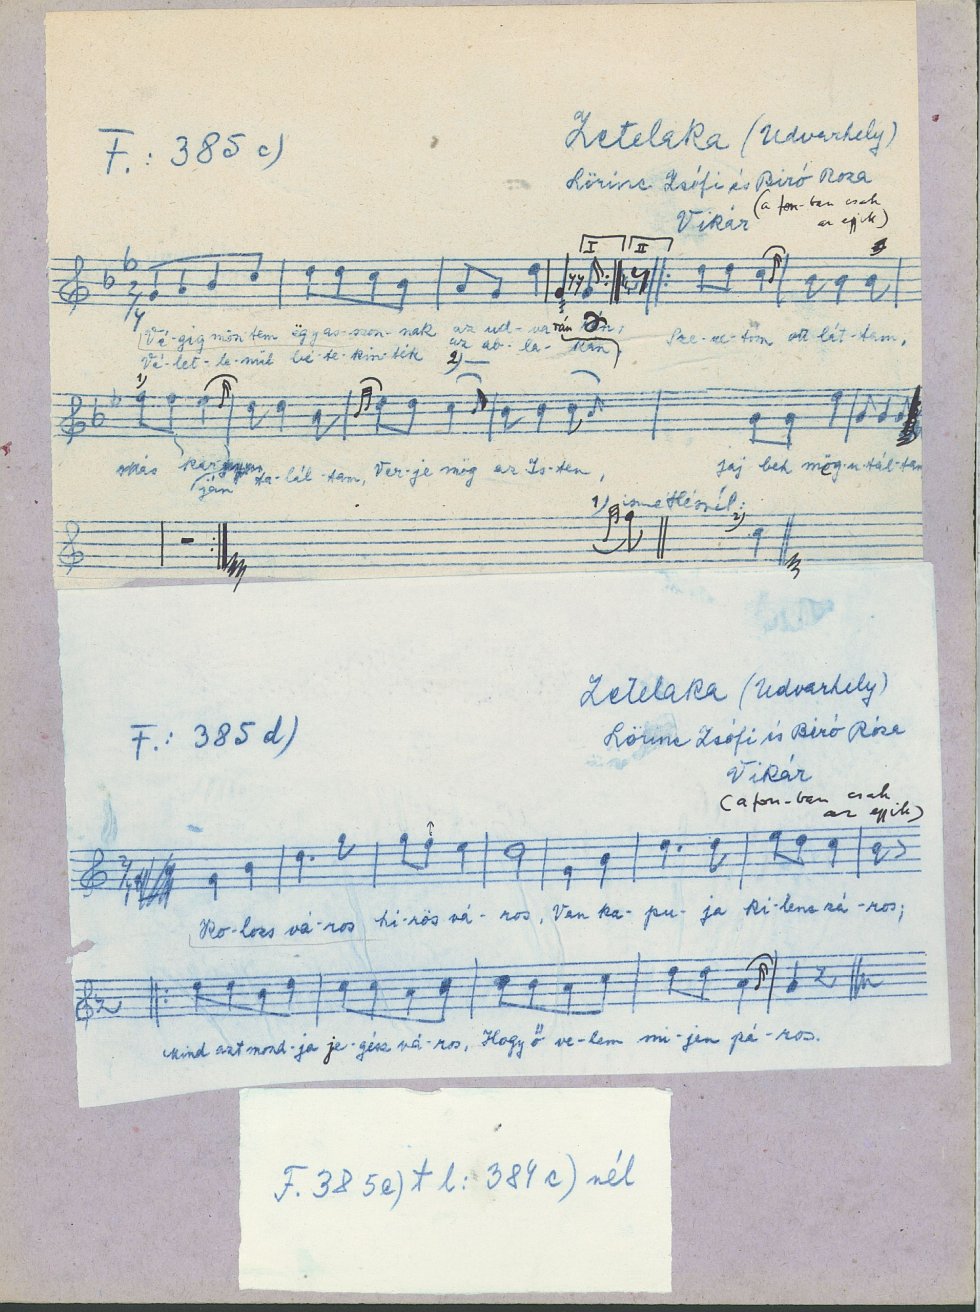 F.: 385 c)
Zetelaka (Udvarhely)
Lőrinc Zsófi és Biró Roza
Vikár (a fon-ban csak
az egyik)
I II
Vé-gig mön-tem ëgy asz-szon-nak az ud-va-rán
Vé-let-le-nül bé-te-kin-ték az ab-la-kán
2)
Sze-re-tőm ott lát-tam,
1)
más kar-ján ta-lál-tam, Ver-je mög az Is-ten, jaj beh mög-u-tál-tam
1) ismétlésnél: 2)
F.: 385 d)
Zetelaka (Udvarhely)
Lőrinc Zsófi és Biró Róza
Vikár
(a fon-ban csak
az egyik)
Ko-lozs vá-ros hi-rös vá-ros, Van ka-pu-ja ki-lenc zá-ros;
Mind azt mond-ja je-gész vá-ros, Hogy ő ve-lem mi-jen pá-ros.
F. 385 e) t l: 384 c) nél